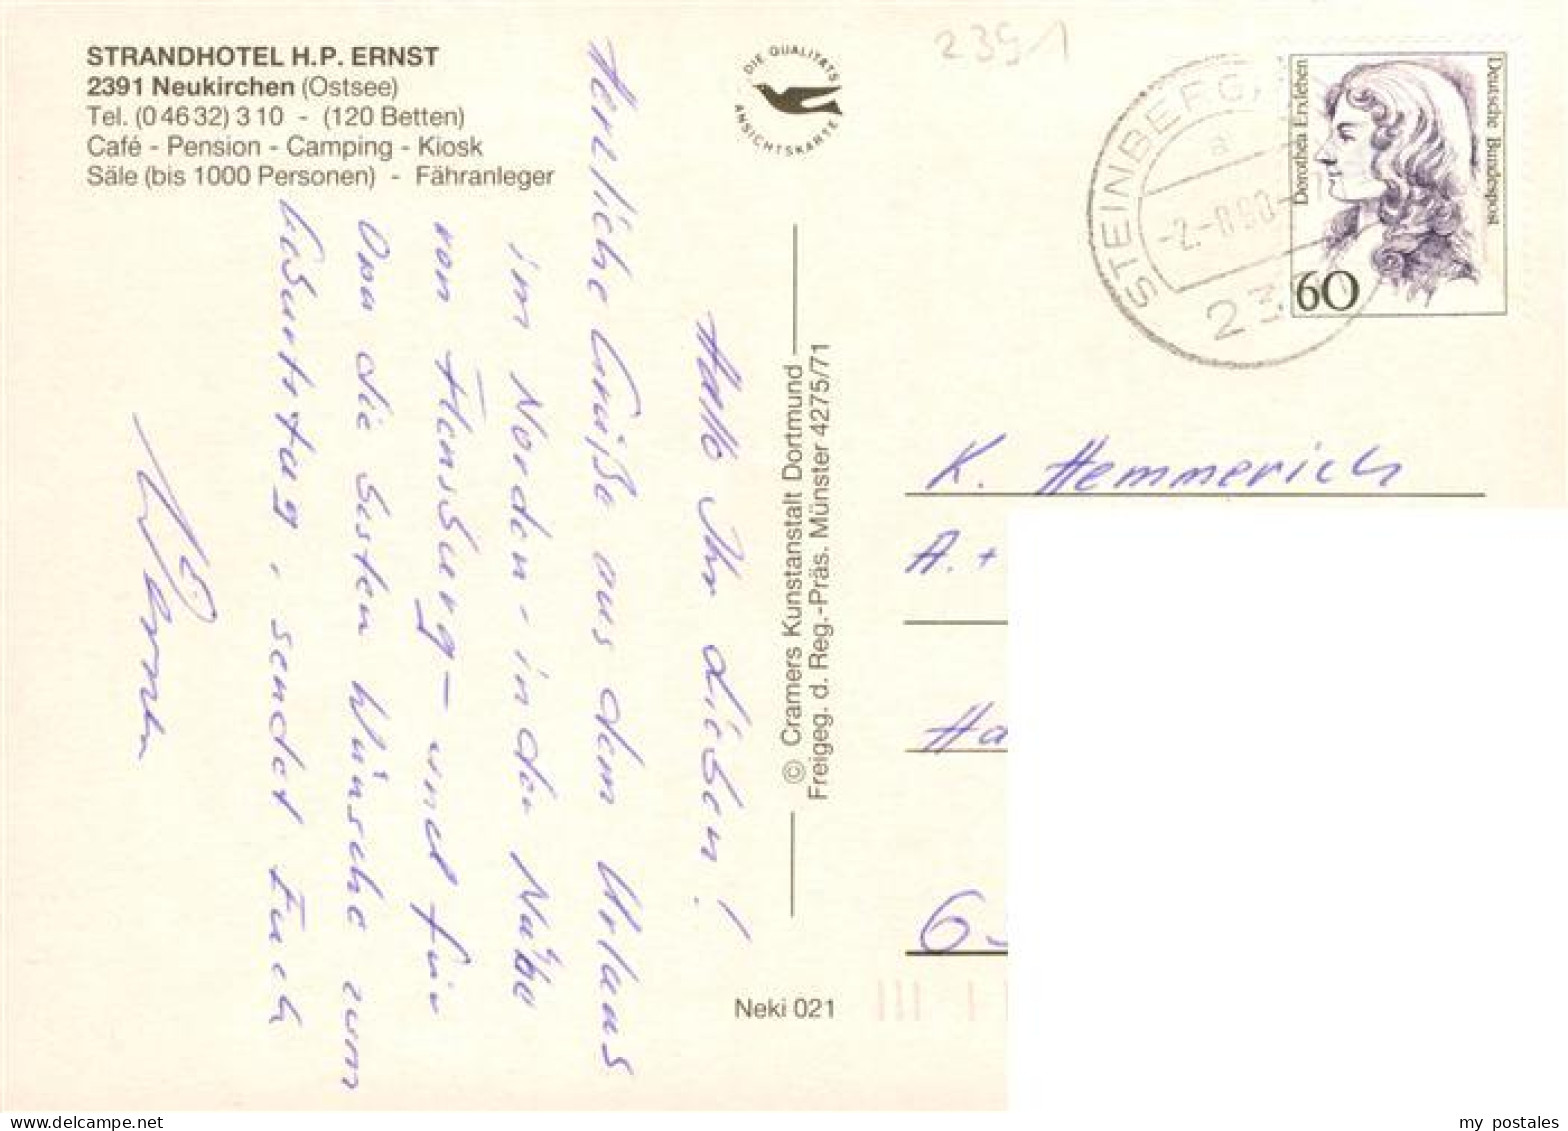 STRANDHOTEL H.P. ERNST
2391 Neukirchen (Ostsee)
Tel. (0 46 32) 3 10 - (120 Betten)
Café - Pension - Camping - Kiosk
Säle (bis 1000 Personen) - Fähranleger
Hallo Ihr Lieben!
Herzliche Grüße aus dem Urlaub
im Norden - in der Nähe
von Flensburg - und für
Opa die besten Wünsche zum
Geburtstag, sendet Euch
DIE QUALITÄTS
ANSICHTSKARTE
© Cramers Kunstanstalt Dortmund
Freigeg. d. Reg.-Präs. Münster 4275/71
Neki 021
2391
STEINBERG
a
-2.-8.90-
23
Dorothea Erxleben
Deutsche Bundespost
60
K. Hemmerich
A. +
Ha
6-
my postales